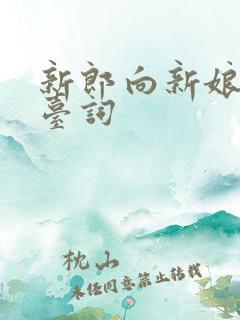 新郎向新娘
臺詞
枕山
未经同意禁止转载